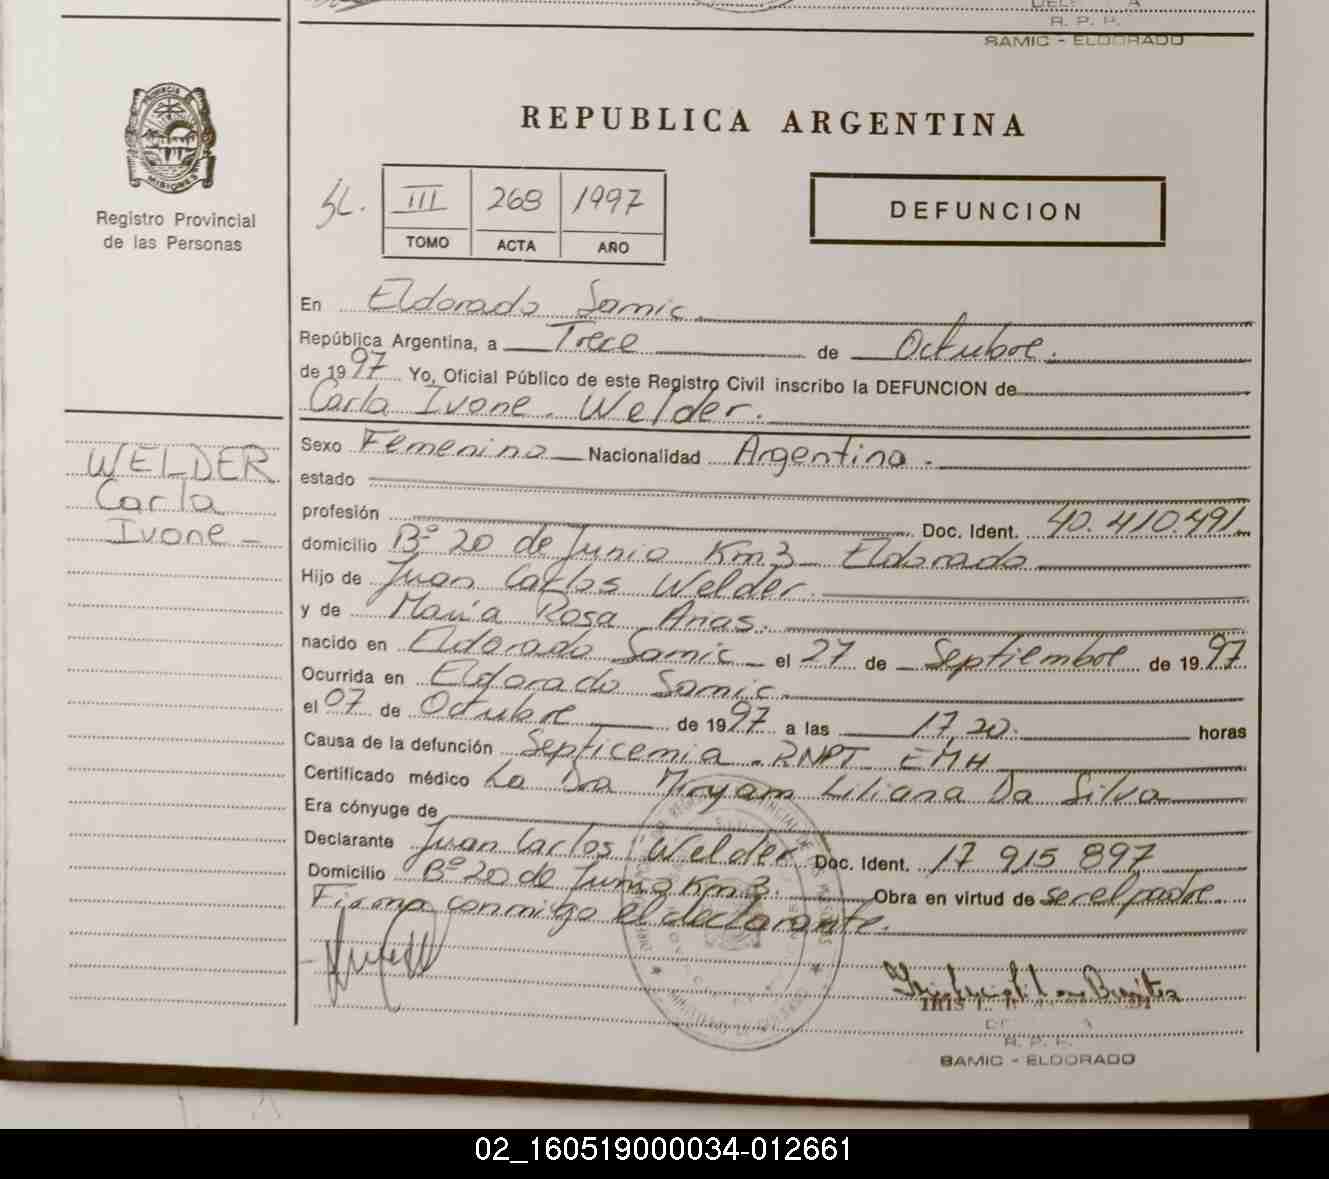 R. P. P.
SAMIC - ELDORADO
PROVINCIA
MISIONES
Registro Provincial
de las Personas
REPUBLICA ARGENTINA
III 268 1997
TOMO ACTA AÑO
DEFUNCION
En Eldorado Samic
República Argentina, a Trece de Octubre.
de 1997 Yo, Oficial Público de este Registro Civil inscribo la DEFUNCION de
Carla Ivone. Welder.
WELDER
Carla
Ivone -
Sexo Femenino Nacionalidad Argentina.
estado
profesión Doc. Ident. 40.410.491
domicilio Bº 20 de Junio Km3 Eldorado
Hijo de Juan Carlos Welder.
y de María Rosa Arias.
nacido en Eldorado Samic el 27 de Septiembre de 1997
Ocurrida en Eldorado Samic.
el 07 de Octubre de 1997 a las 17,20. horas
Causa de la defunción Septicemia. RNPT EMH
Certificado médico La Dra Miryam Liliana Da Silva
Era cónyuge de
Declarante Juan Carlos Welder Doc. Ident. 17 915 897
Domicilio Bº 20 de Junio Km3. Obra en virtud de ser el padre.
Firma conmigo el declarante.
R. P. P.
SAMIC - ELDORADO
02_160519000034-012661